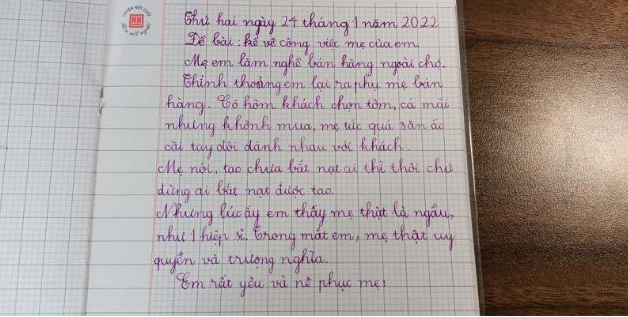 Thứ hai ngày 24 tháng 1 năm 2022
Đề bài: kể về công việc mẹ của em.
Mẹ em làm nghề bán hàng ngoài chợ.
Thỉnh thoảng em lại ra phụ mẹ bán
hàng. Có hôm khách chọn tôm, cá mãi
nhưng không mua, mẹ tức quá săn áo
cài tay đòi đánh nhau với khách.
Mẹ nói, tao chưa bắt nạt ai thì thôi chứ
đừng ai bắt nạt được tao.
Nhưng lúc ấy em thấy mẹ thật là ngầu,
như 1 hiệp sĩ. Trong mắt em, mẹ thật uy
quyền và trượng nghĩa.
Em rất yêu và nể phục mẹ!